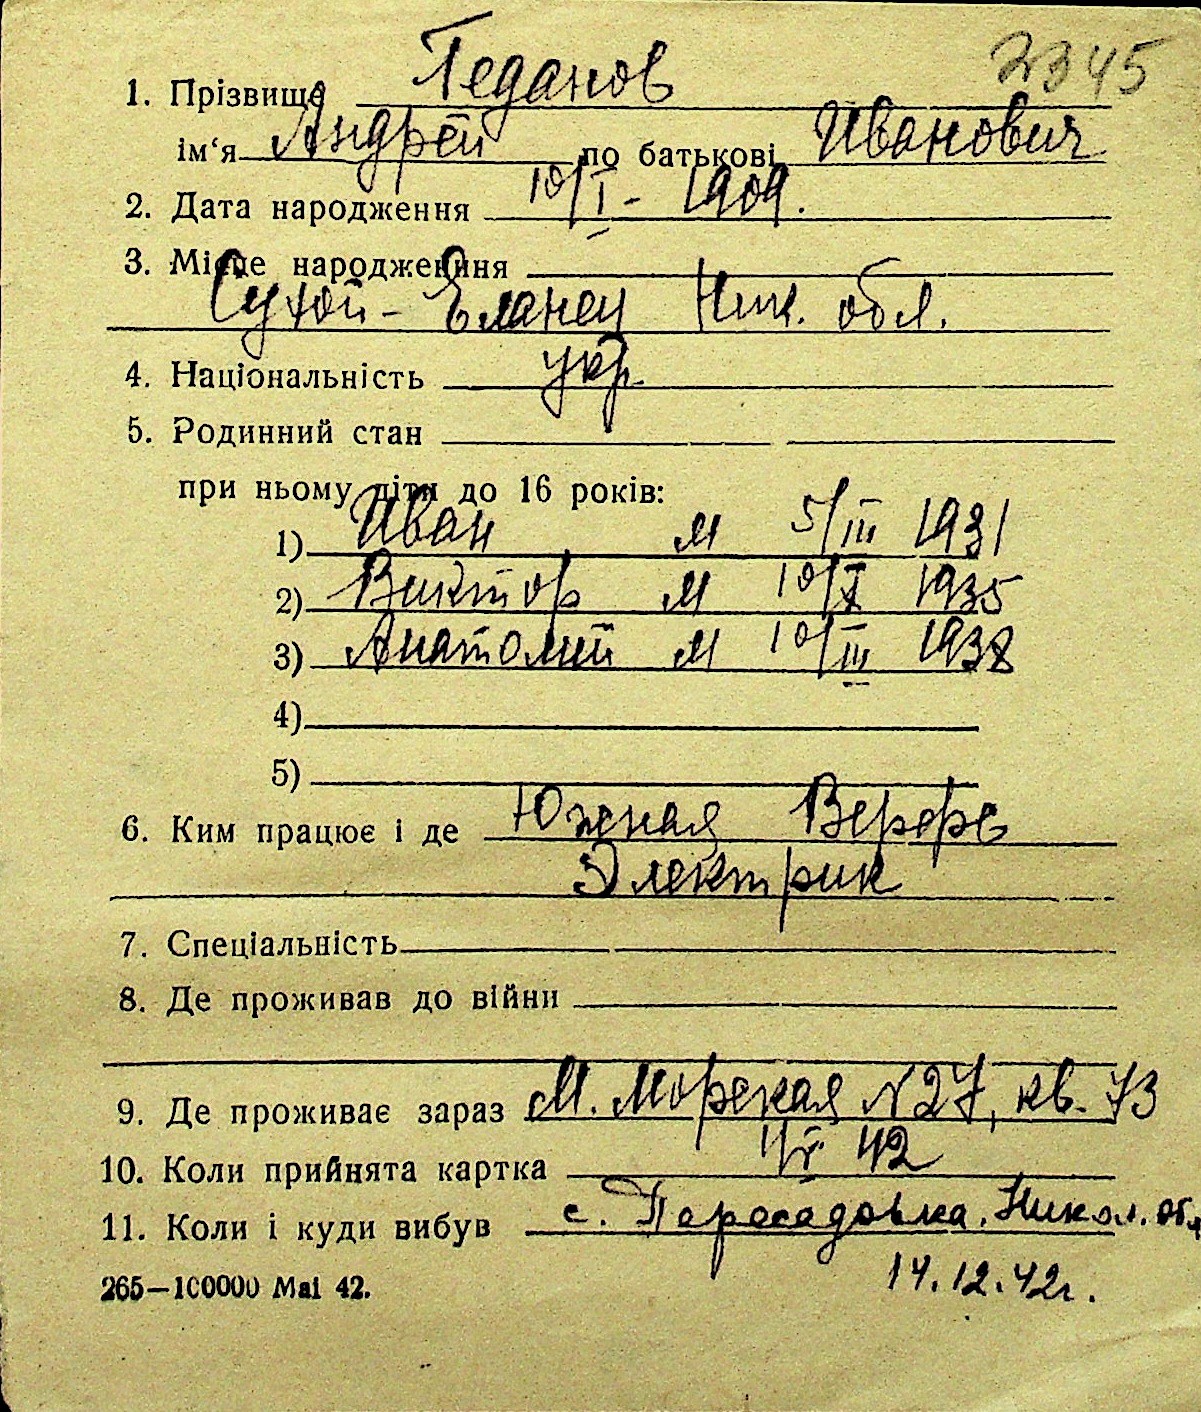 2345
1. Прізвище Геданов
ім‘я Андрей по батькові Иванович
2. Дата народження 10/I - 1909.
3. Місце народження
Сухой-Еланец Ник. обл.
4. Національність укр.
5. Родинний стан
при ньому діти до 16 років:
1) Иван м 5/III 1931
2) Виктор м 10/X 1935
3) Анатолий м 10/III 1938
4)
5)
6. Ким працює і де Южная Верфь
Электрик
7. Спеціальність
8. Де проживав до війни
9. Де проживає зараз М. Морская N 27, кв. 73
10. Коли прийнята картка 42
11. Коли і куди вибув с. Пересадовка. Никол. обл
14.12.42г.
265—100000 Mai 42.